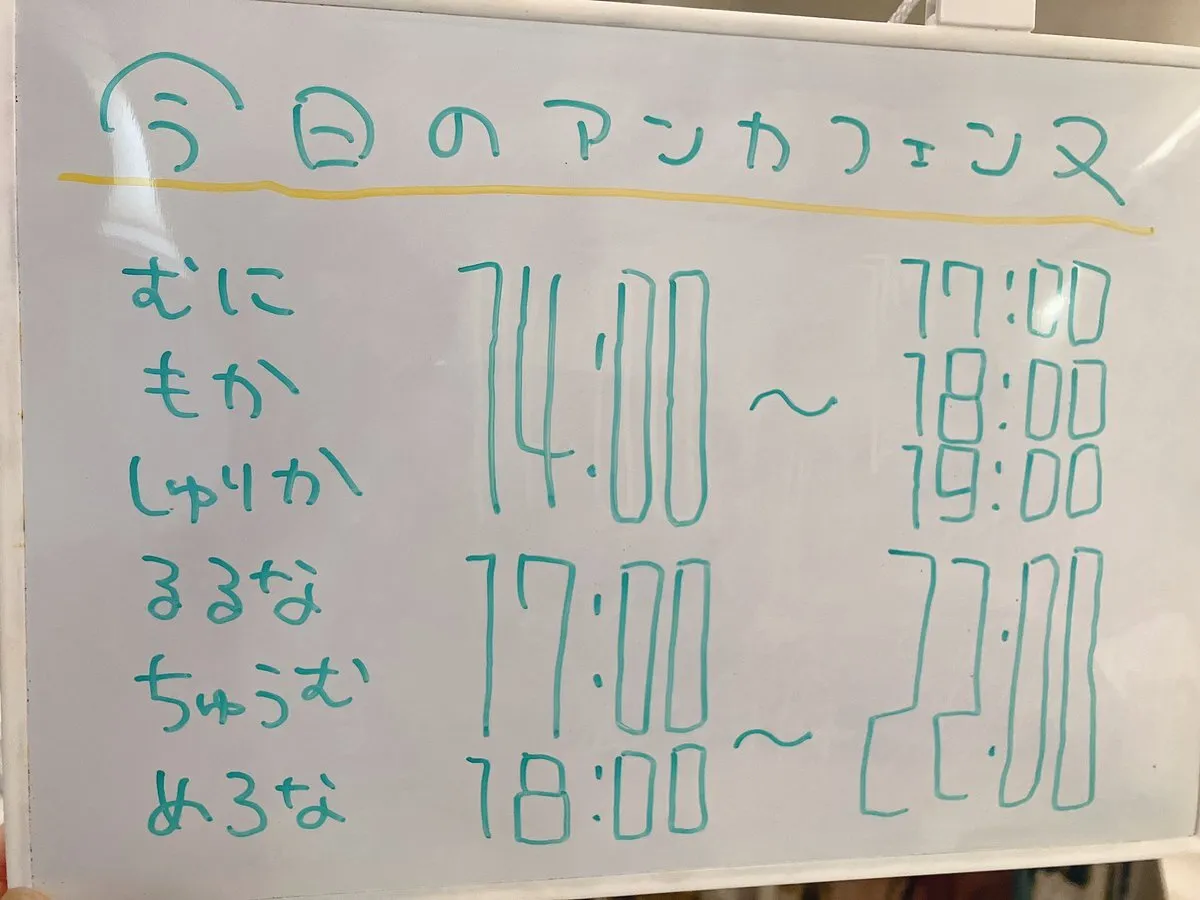 今日のアンカフェンヌ
むに 14:00 ~ 17:00
もか 18:00
しゅりか 19:00
るるな 17:00 ~ 22:00
ちゅうむ
めろな 18:00